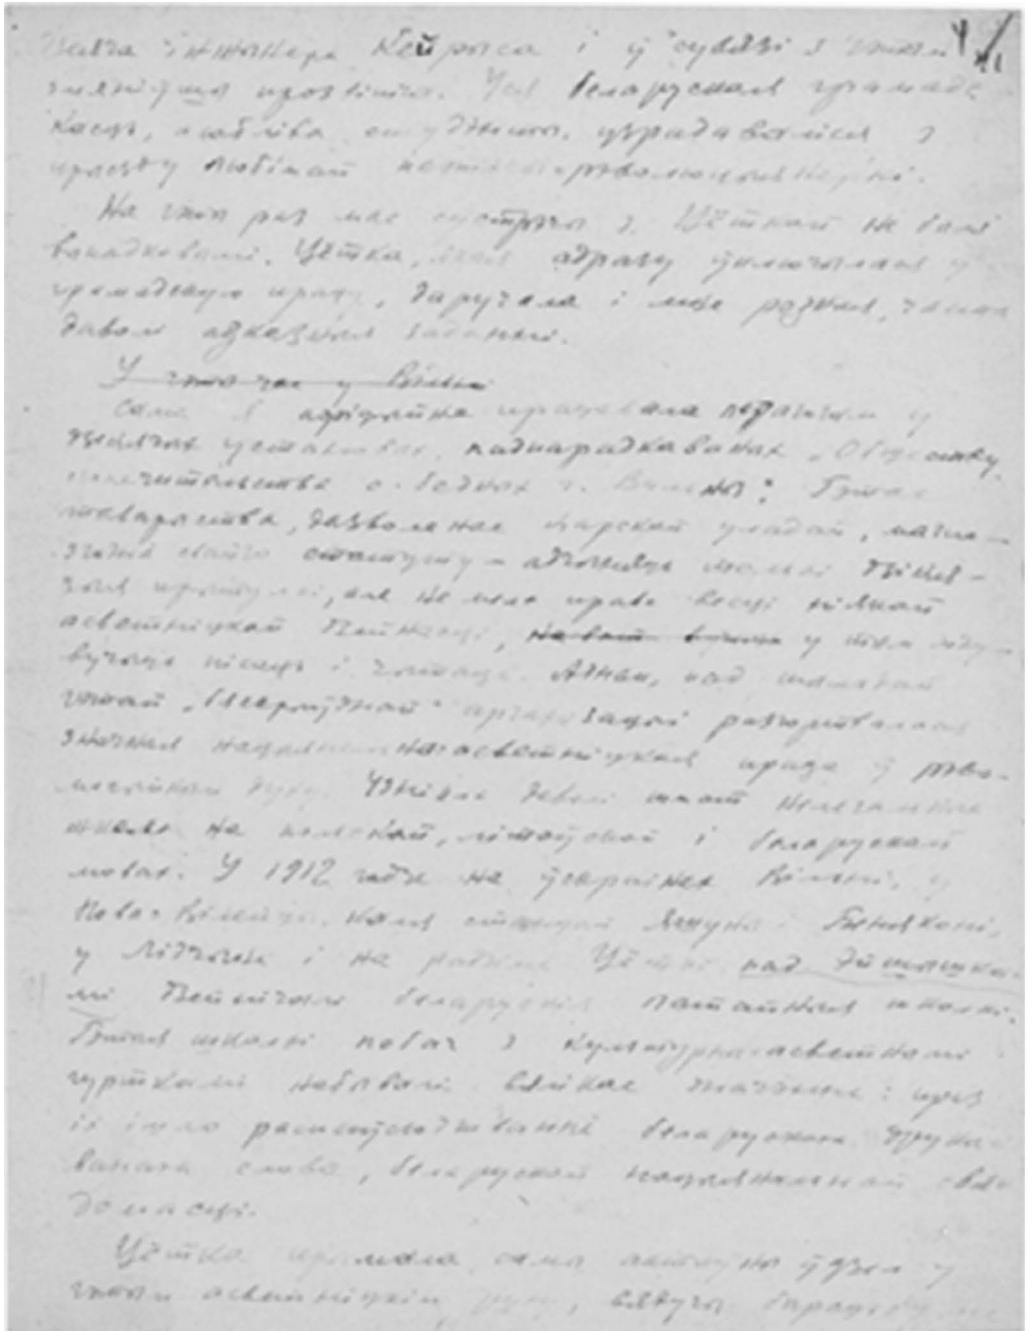 інжынера Кейрыса і ў сувязі з гэтым
прозвішча. Уся беларуская грамад-
касць, асабліва студэнты, узрадаваліся з
прыезду любімай паэткі-рэвалюцыянеркі.
На гэты раз мае сустрэчы з Цёткай не былі
выпадковымі. Цётка, якая адразу ўключылася ў
грамадскую працу, даручала і мне розныя, часам
даволі адказныя заданні.
У гэты час у Вільні
Сама я афіцыйна працавала педагогам у
дзіцячых установах, паднарадкаваных „Обществу
попечительства о бедных г. Вильны". Гэтае
таварыства, дазволенае царскай уладай, магло
згодна свайго статуту — адчыняць толькі дзіця-
чыя прытулкі, але не мела права весці ніякай
асветніцкай дзейнасці, у тым ліку
вучыць пісаць і чытаць. Аднак, пад шыльдай
гэтай арганізацыі разгортвалася
значная нацыянальна-асветніцкая праца ў рэва-
люцыйным духу. Узніклі даволі многа нелегальных
школ на польскай, літоўскай і беларускай
мовах. У 1912 годзе на ўскраінах Вільні, у
Нова-Вілейцы, каля станцыі Яшуны і Беняконі,
у Лідчыне і на радзіме Цёткі над Эйшышка-
мі дзейнічалі беларускія патайныя школкі.
Гэтыя школкі побач з культурна-асветнымі
гурткамі набывалі вялікае значэнне: праз
іх ішло распаўсюджванне беларускага друка-
ванага слова, беларускай нацыянальнай свя-
домасці.
Цётка прымала сама актыўны ўдзел у
гэтым асветніцкім руху, вядучы барацьбу